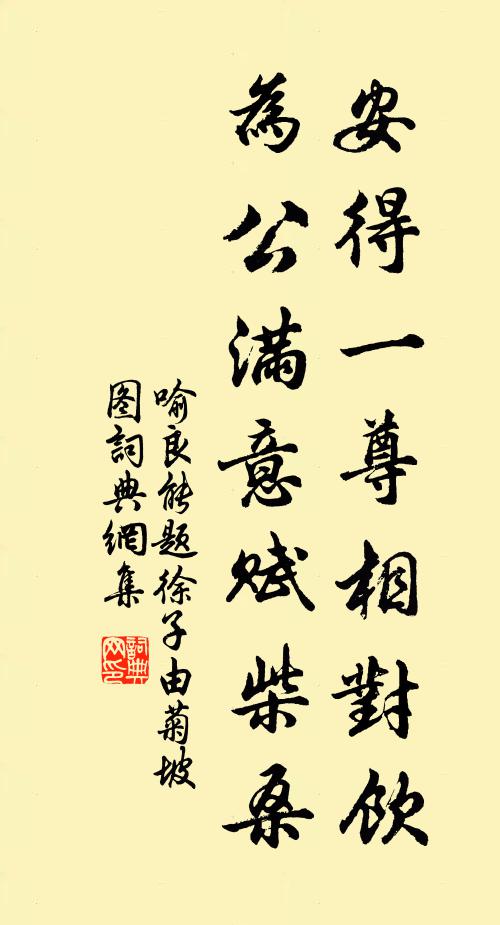 安得一尊相對飲
為公滿意賦柴桑
喻良能題徐子由菊坡
圖詞典網集
詞典网印